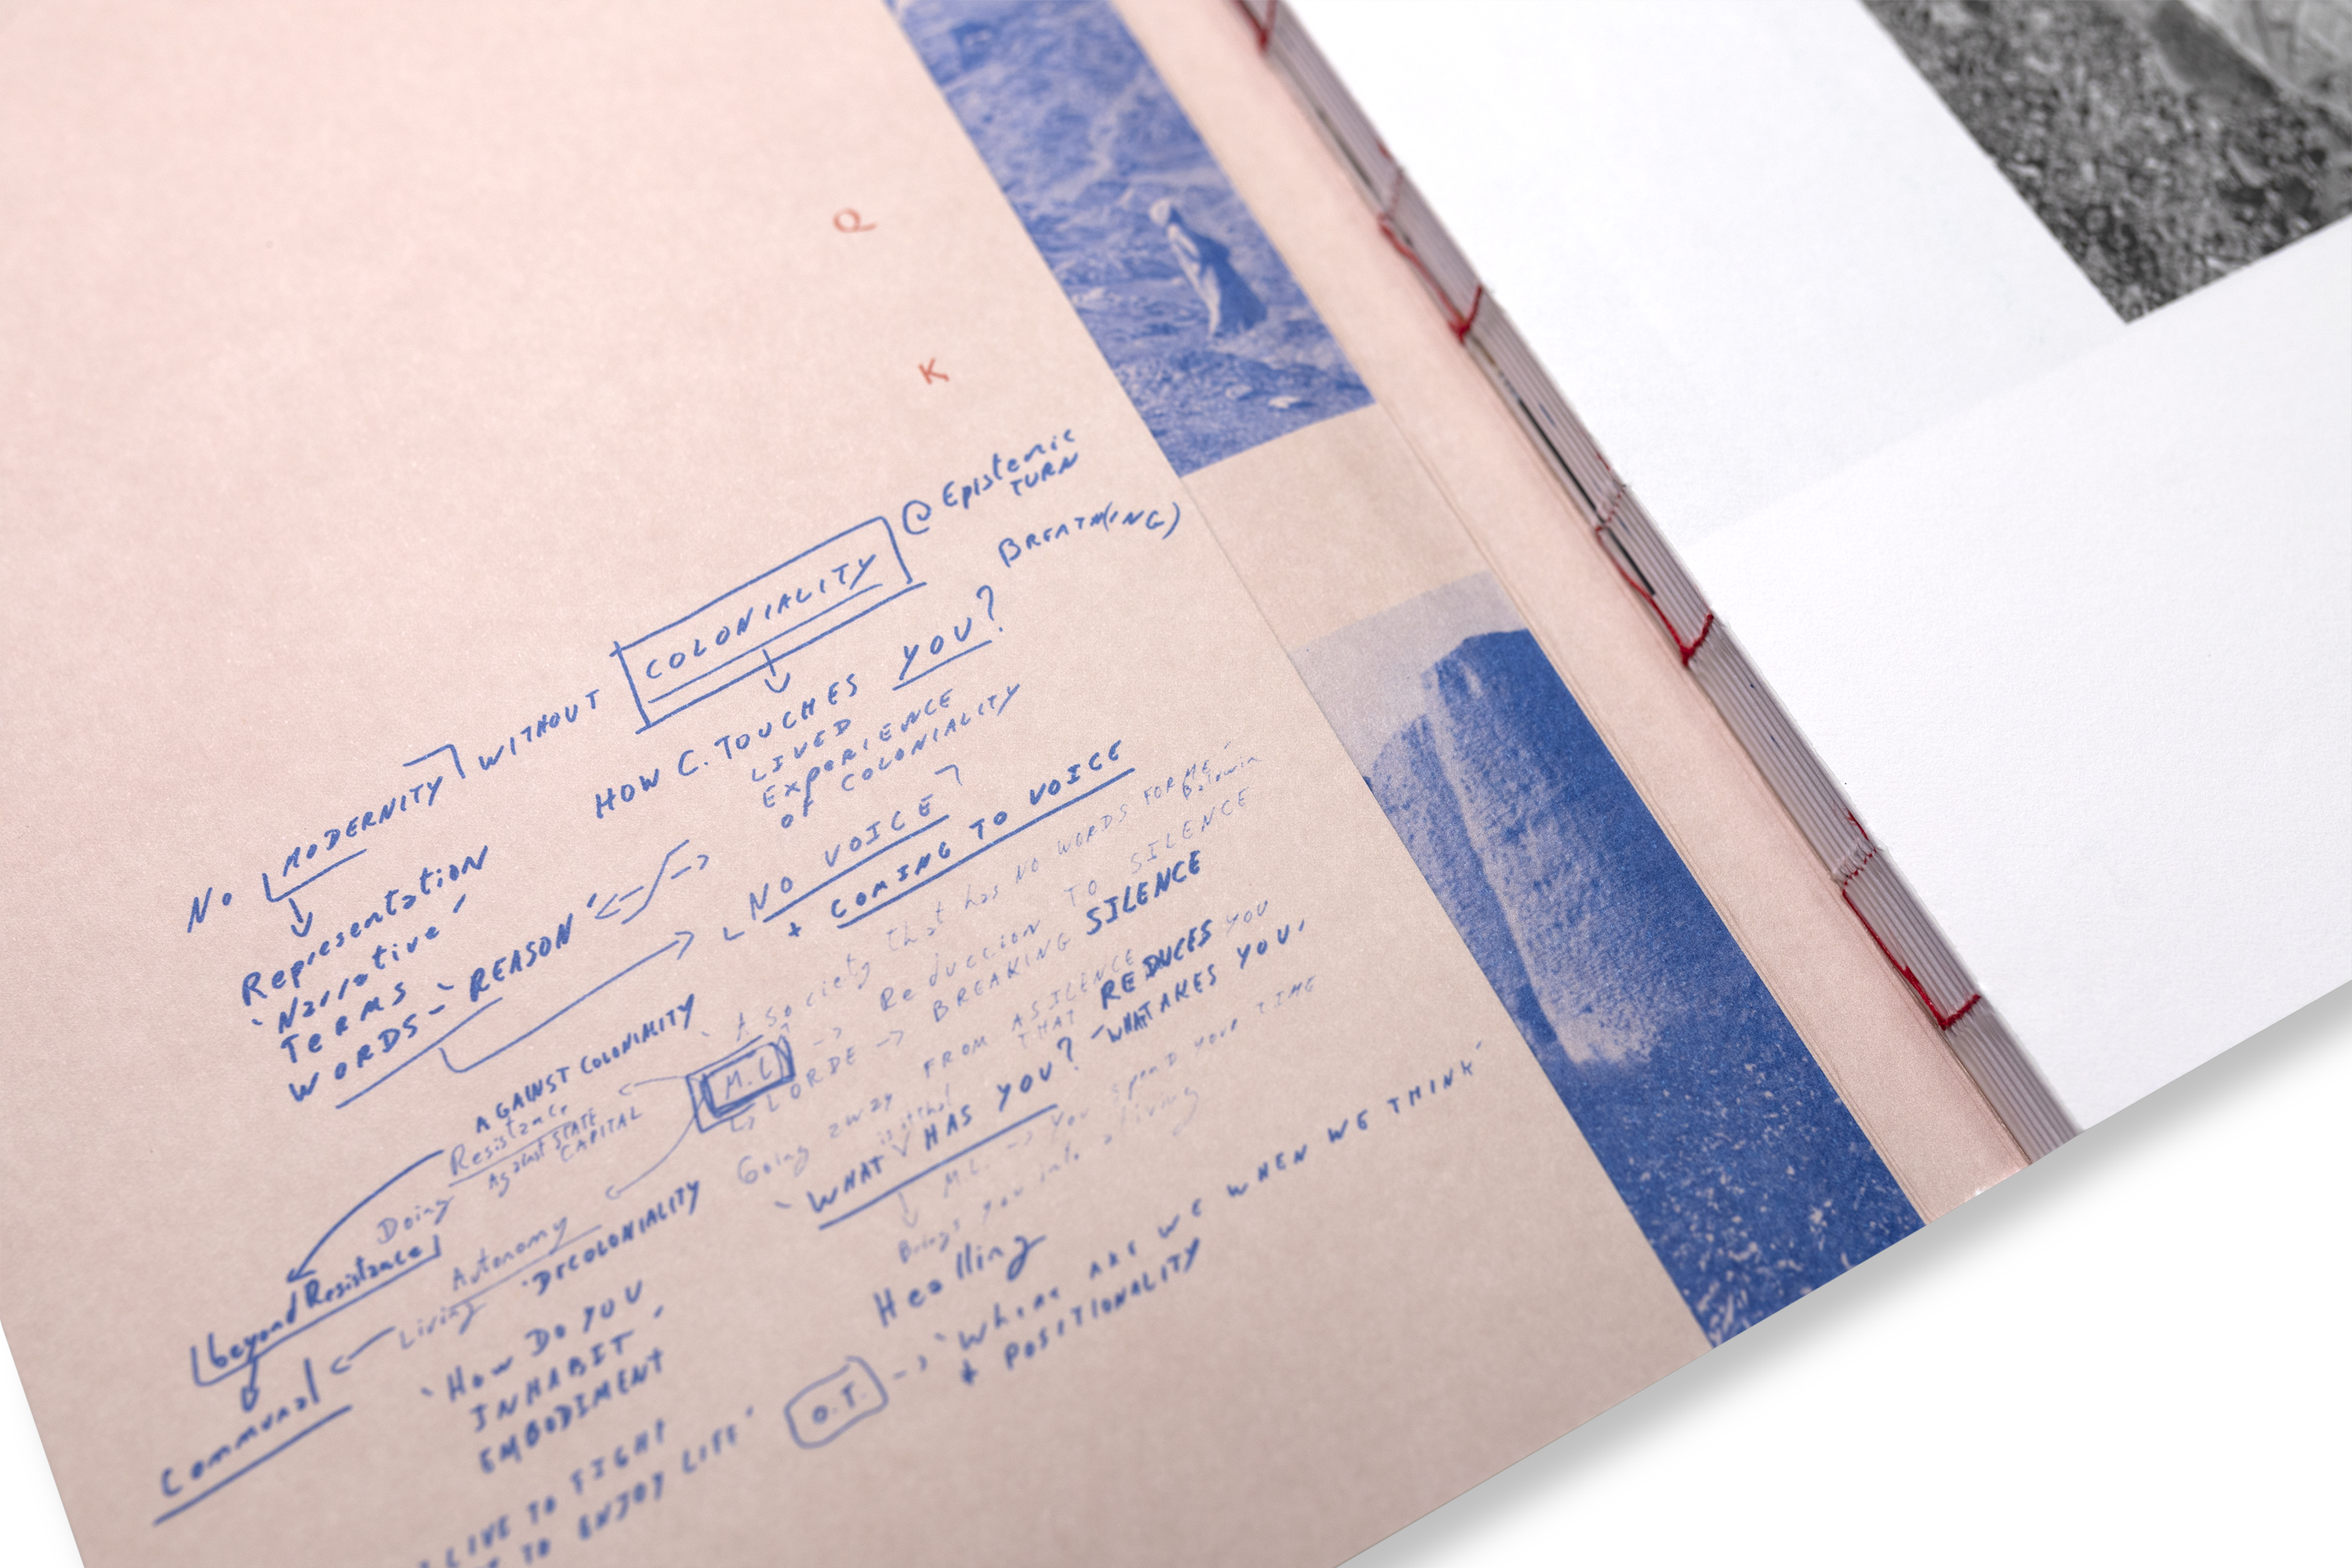 Q
K
@ Epistemic
TURN
BREATH(ING)
No MODERNITY WITHOUT COLONIALITY
HOW C. TOUCHES YOU?
LIVED
EXPERIENCE
OF COLONIALITY
Representation
'Narrative'
TERMS
WORDS - 'REASON'
NO VOICE
+ COMING TO VOICE
'A society that has NO WORDS FOR ME
Baldwin
M.L
Reduccion TO SILENCE
LORDE -> BREAKING SILENCE
Going away FROM A SILENCE
THAT REDUCES YOU
is it that
'WHAT HAS YOU? - WHAT TAKES YOU,
M.L. -> You spend YOUR TIME
Brings you into a living
Healling
AGAINST COLONIALITY
Resistance
Against STATE
CAPITAL
Doing
beyond Resistance
Autonomy
Living 'DECOLONIALITY
Communal
'HOW DO YOU
INHABIT'
EMBODIMENT
O.T. -> 'Where ARE WE WHEN WE THINK'
+ POSITIONALITY
LIVE TO FIGHT
TO ENJOY LIFE'